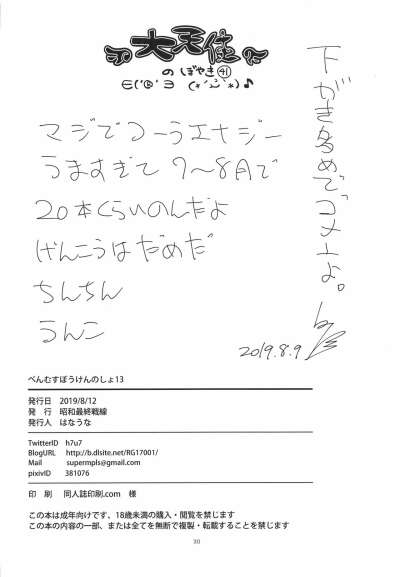 大天使
のぼやき㊶
下がき多めでゴメーよ。
マジでコーラエナジー
うますぎて 7〜8月で
20本くらいのんだよ
げんこうはだめだ
ちんちん
うんこ
2019.8.9
べんむすぼうけんのしょ13
発行日 2019/8/12
発 行 昭和最終戦線
発行人 はなうな
TwitterID h7u7
BlogURL http://b.dlsite.net/RG17001/
Mail supermpls@gmail.com
pixivID 381076
印 刷 同人誌印刷.com 様
この本は成年向けです、18歳未満の購入・閲覧を禁じます
この本の内容の一部、または全てを無断で複製・転載することを禁じます